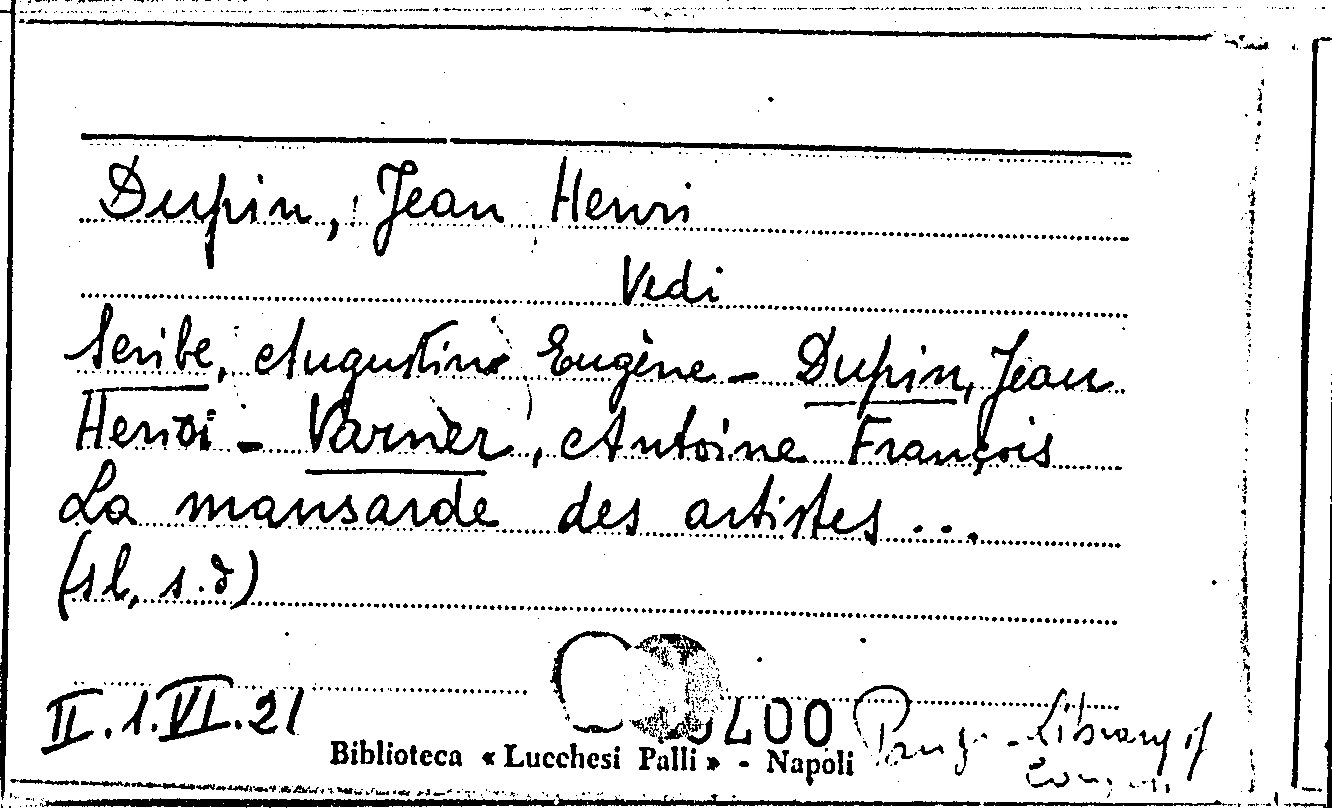 Dupin, Jean Henri
Vedi
Scribe, Augustin Eugène - Dupin, Jean
Henri - Varner, Antoine François
La mansarde des artistes ...
(s.l, s.d)
II.1.VI.21
Library of
Biblioteca « Lucchesi Palli » - Napoli